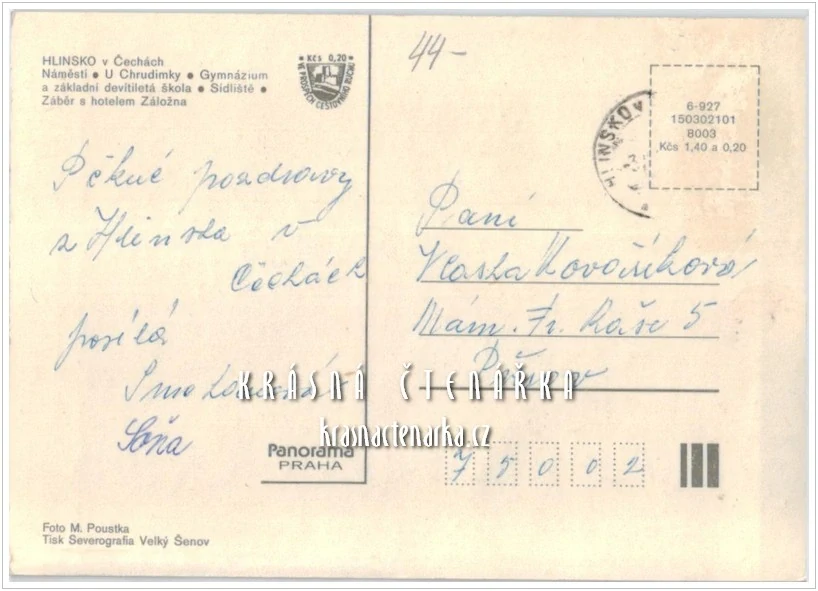 HLINSKO v Čechách
Náměstí • U Chrudimky • Gymnázium
a základní devítiletá škola • Sídliště •
Záběr s hotelem Záložna
Kčs 0,20
VE PROSPĚCH CESTOVNÍHO RUCHU
44-
HLINSKO V
6-927
150302101
8003
Kčs 1,40 a 0,20
Pěkné pozdravy
z Hlinska v
Čechách
posílá
Soňa
Paní
Vlasta Kovaříková
Nám. Fr. Raše 5
Přerov
75002
KRÁSNÁ ČTENÁŘKA
krasnactenarka.cz
Panorama
PRAHA
Foto M. Poustka
Tisk Severografia Velký Šenov